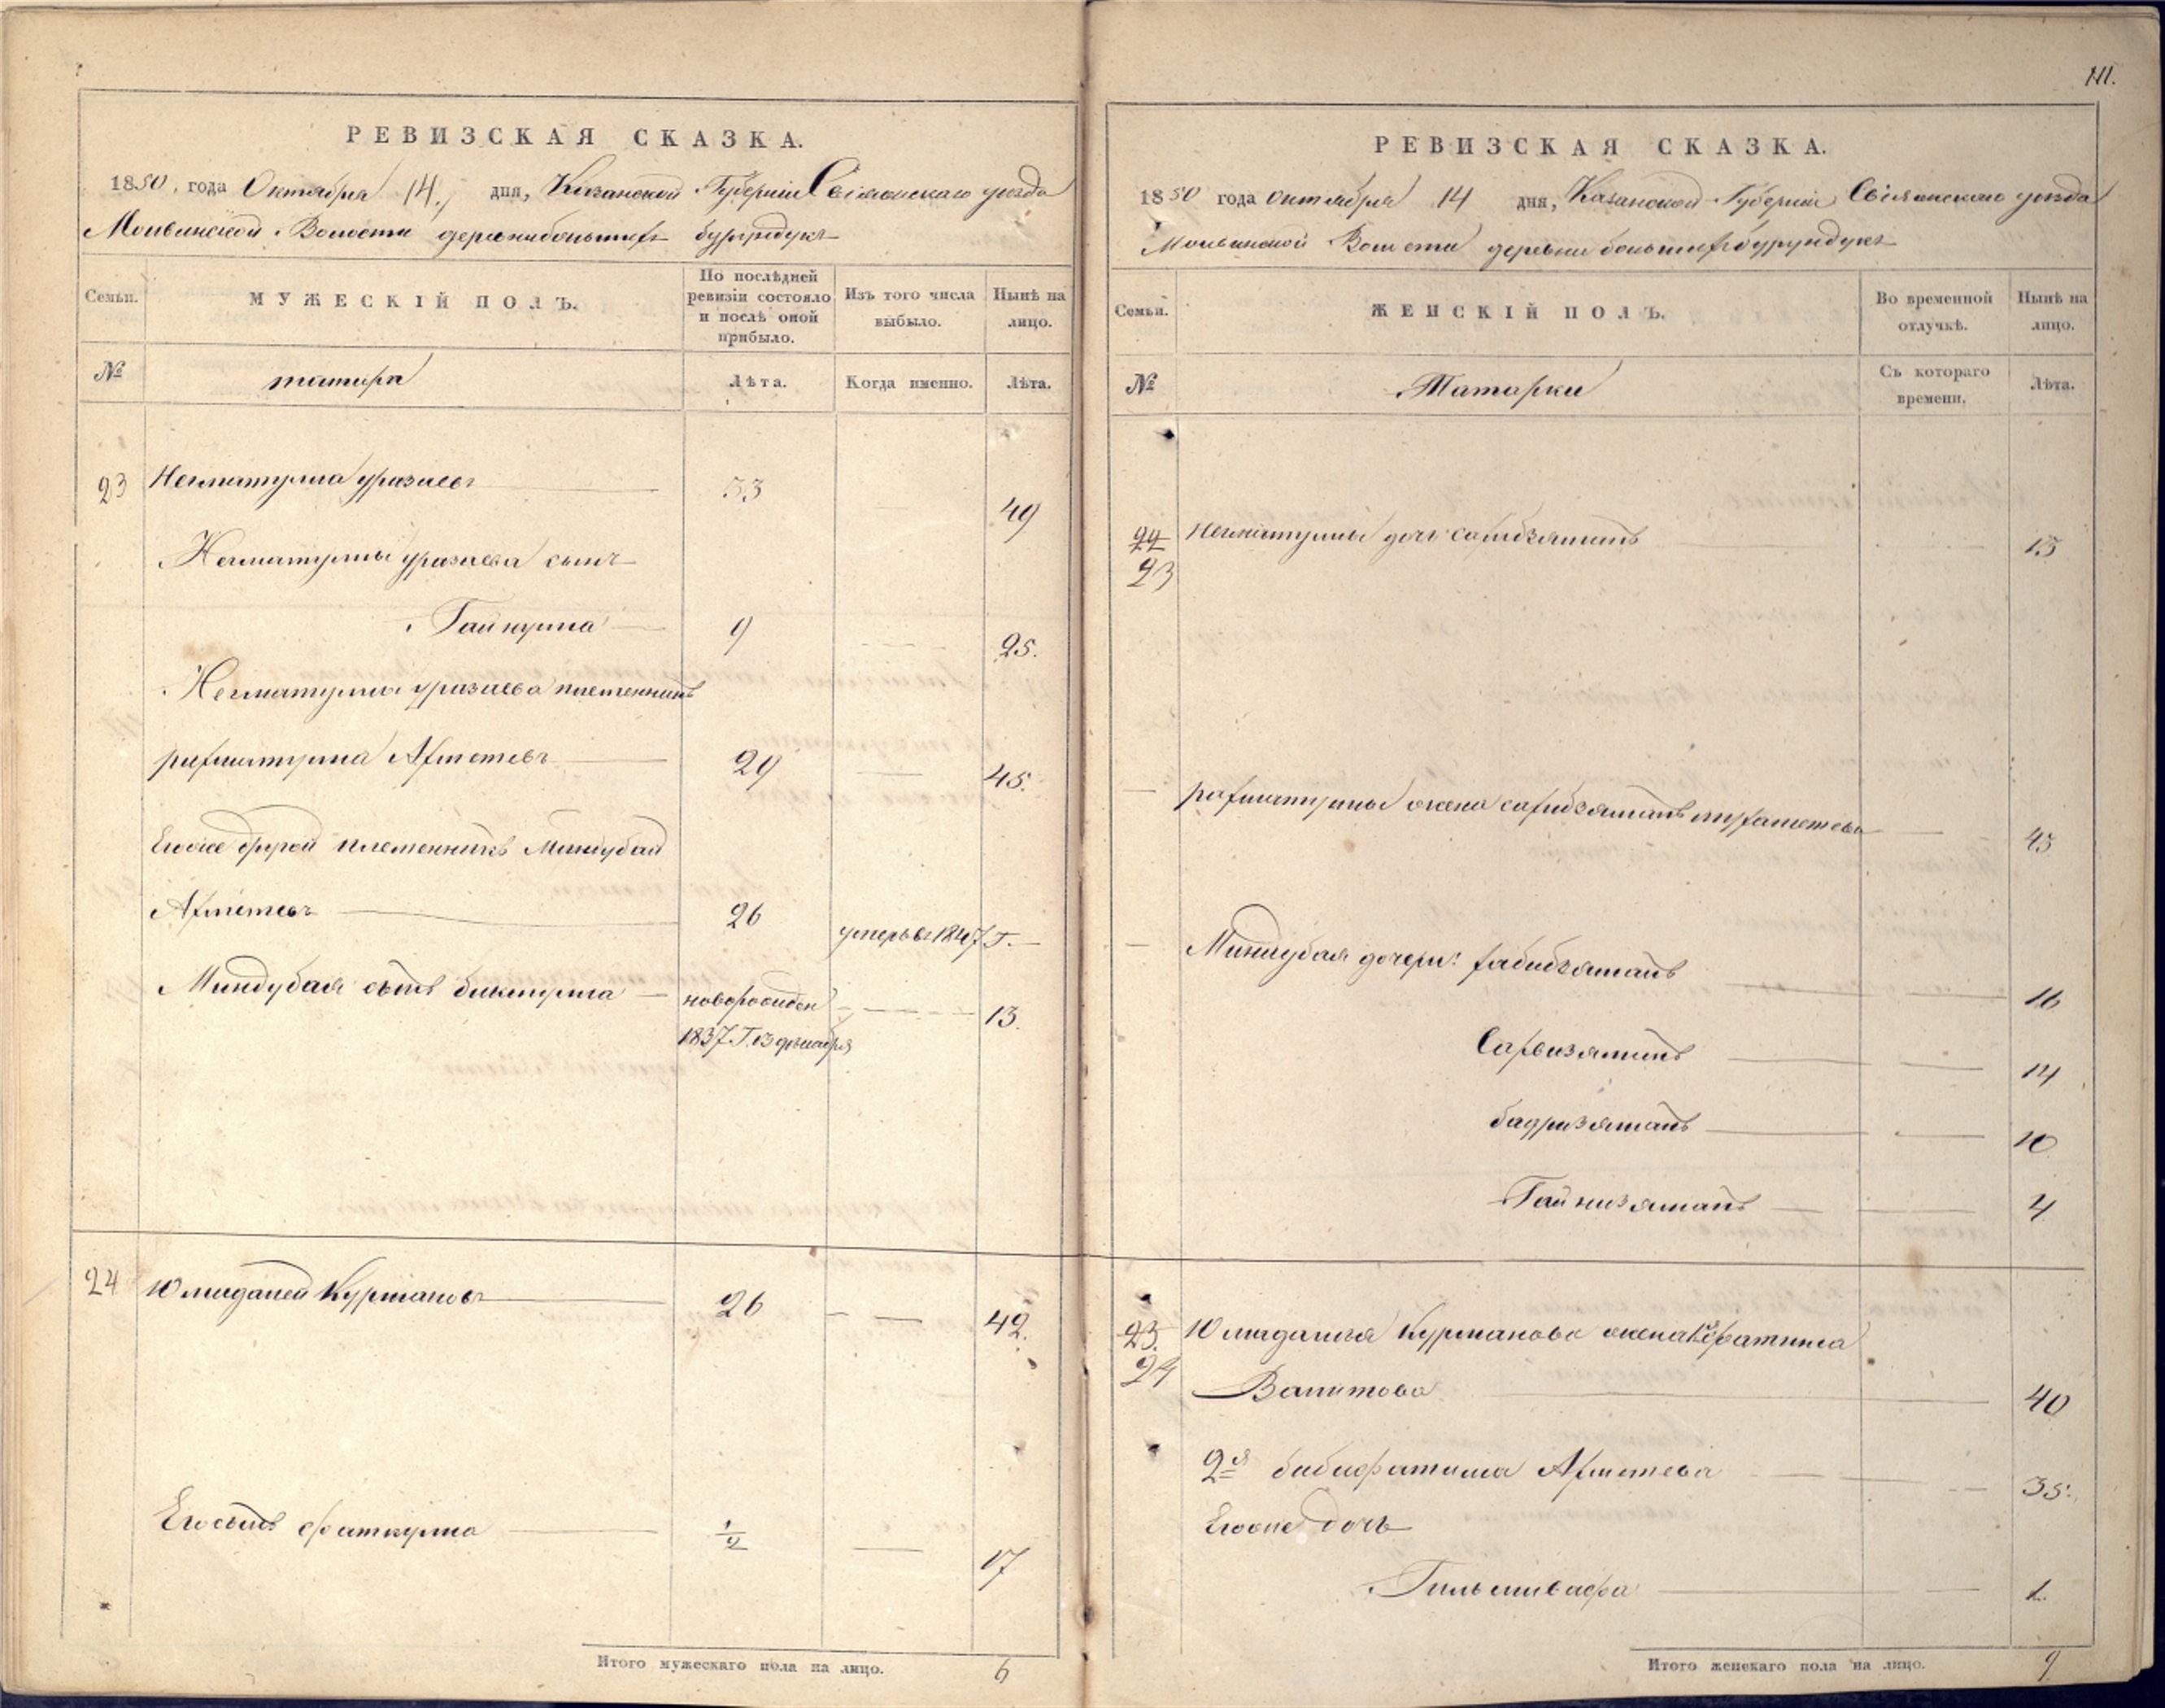 111.
РЕВИЗСКАЯ СКАЗКА.
1850. года Октября 14., дня, Казанской Губерніи Свіяжскаго уезда
Молвинской Волости деревни большихъ бурундукъ
Семьи. МУЖЕСКІЙ ПОЛЪ. По послѣдней ревизіи состояло и послѣ оной прибыло. Изъ того числа выбыло. Нынѣ на лицо.
№ татара Лѣта. Когда именно. Лѣта.
23 Негматулла уразаевъ 33 49
Негматуллы уразаева сынъ
Гайнулла 9 25.
Негматуллы уразаева племенникъ
рахматулла Ахметевъ 29 45.
Егоже другой племенникъ Миндубай
Ахметевъ 26 умеръ въ 1847 Г.
Миндубая сынъ биктулла новорожден 13.
1837 Г. 13 декабря
24 Юлмаданей Курмановъ 26 42.
Егосынъ фаткулла 1/2 17
Итого мужескаго пола на лицо. 6
РЕВИЗСКАЯ СКАЗКА.
1850 года октября 14 дня, Казанской Губерніи Свіяжскаго уезда
Молвинской Волости деревни большихъ бурундукъ
Семьи. ЖЕНСКІЙ ПОЛЪ. Во временной отлучкѣ. Нынѣ на лицо.
№ Татарки Съ котораго времени. Лѣта.
22 Негматуллы дочь сахибзямалъ 13
23
рахматуллы жена сахибзямалъ 45
Миндубая дочери: хабибзямалъ 16
Сарвизямалъ 14
бадризямалъ 10
Гайнизямалъ 4
23. Юлмаданея Курманова жена
24
Валитова 40
2я бибифатима Ахметева 35.
Егоже дочь
Гильмивафа 1.
Итого женскаго пола на лицо. 9